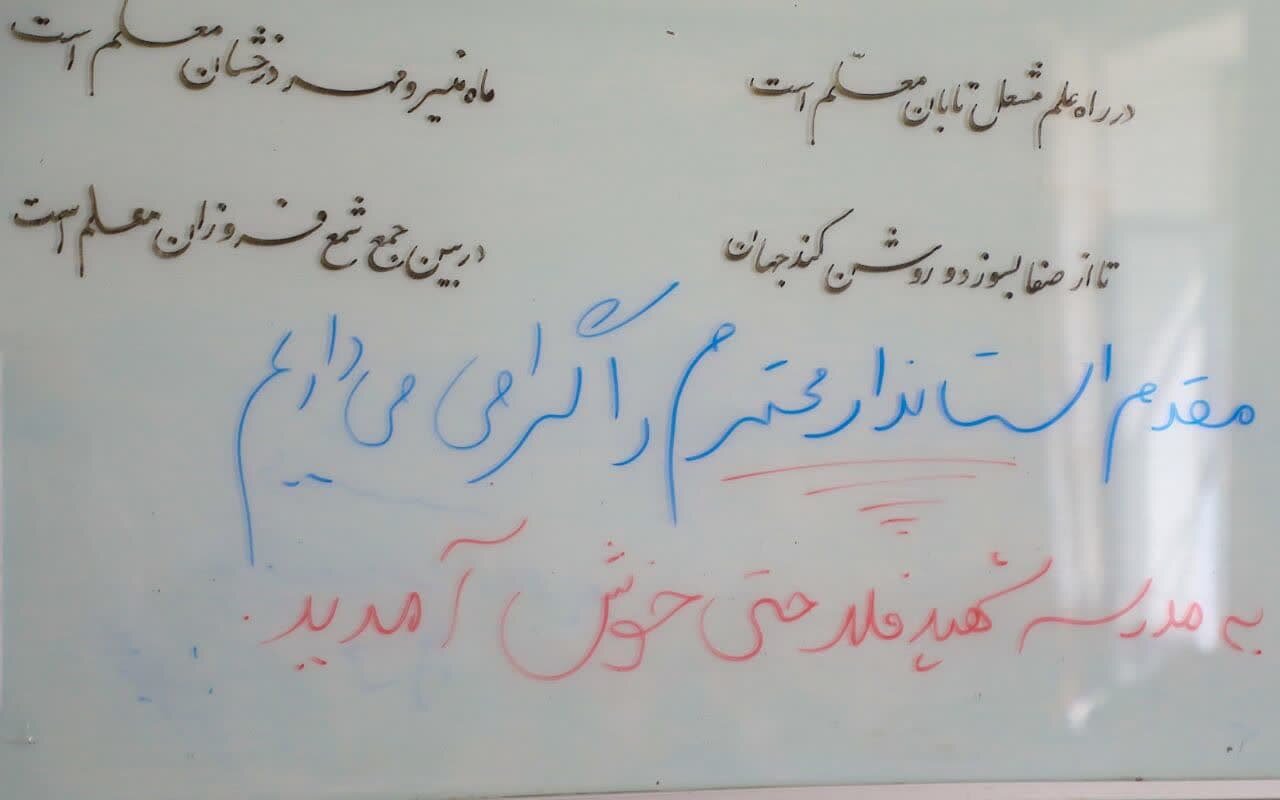 در راه علم مشعل تابان معلّم است
ماه منیر و مهر درخشان معلم است
تا از صفا بسوزد و روشن کند جهان
در بین جمع شمع فروزان معلم است
مقدم استاندار محترم را گرامی می داریم
به مدرسه شهید فلاحتی خوش آمدید.